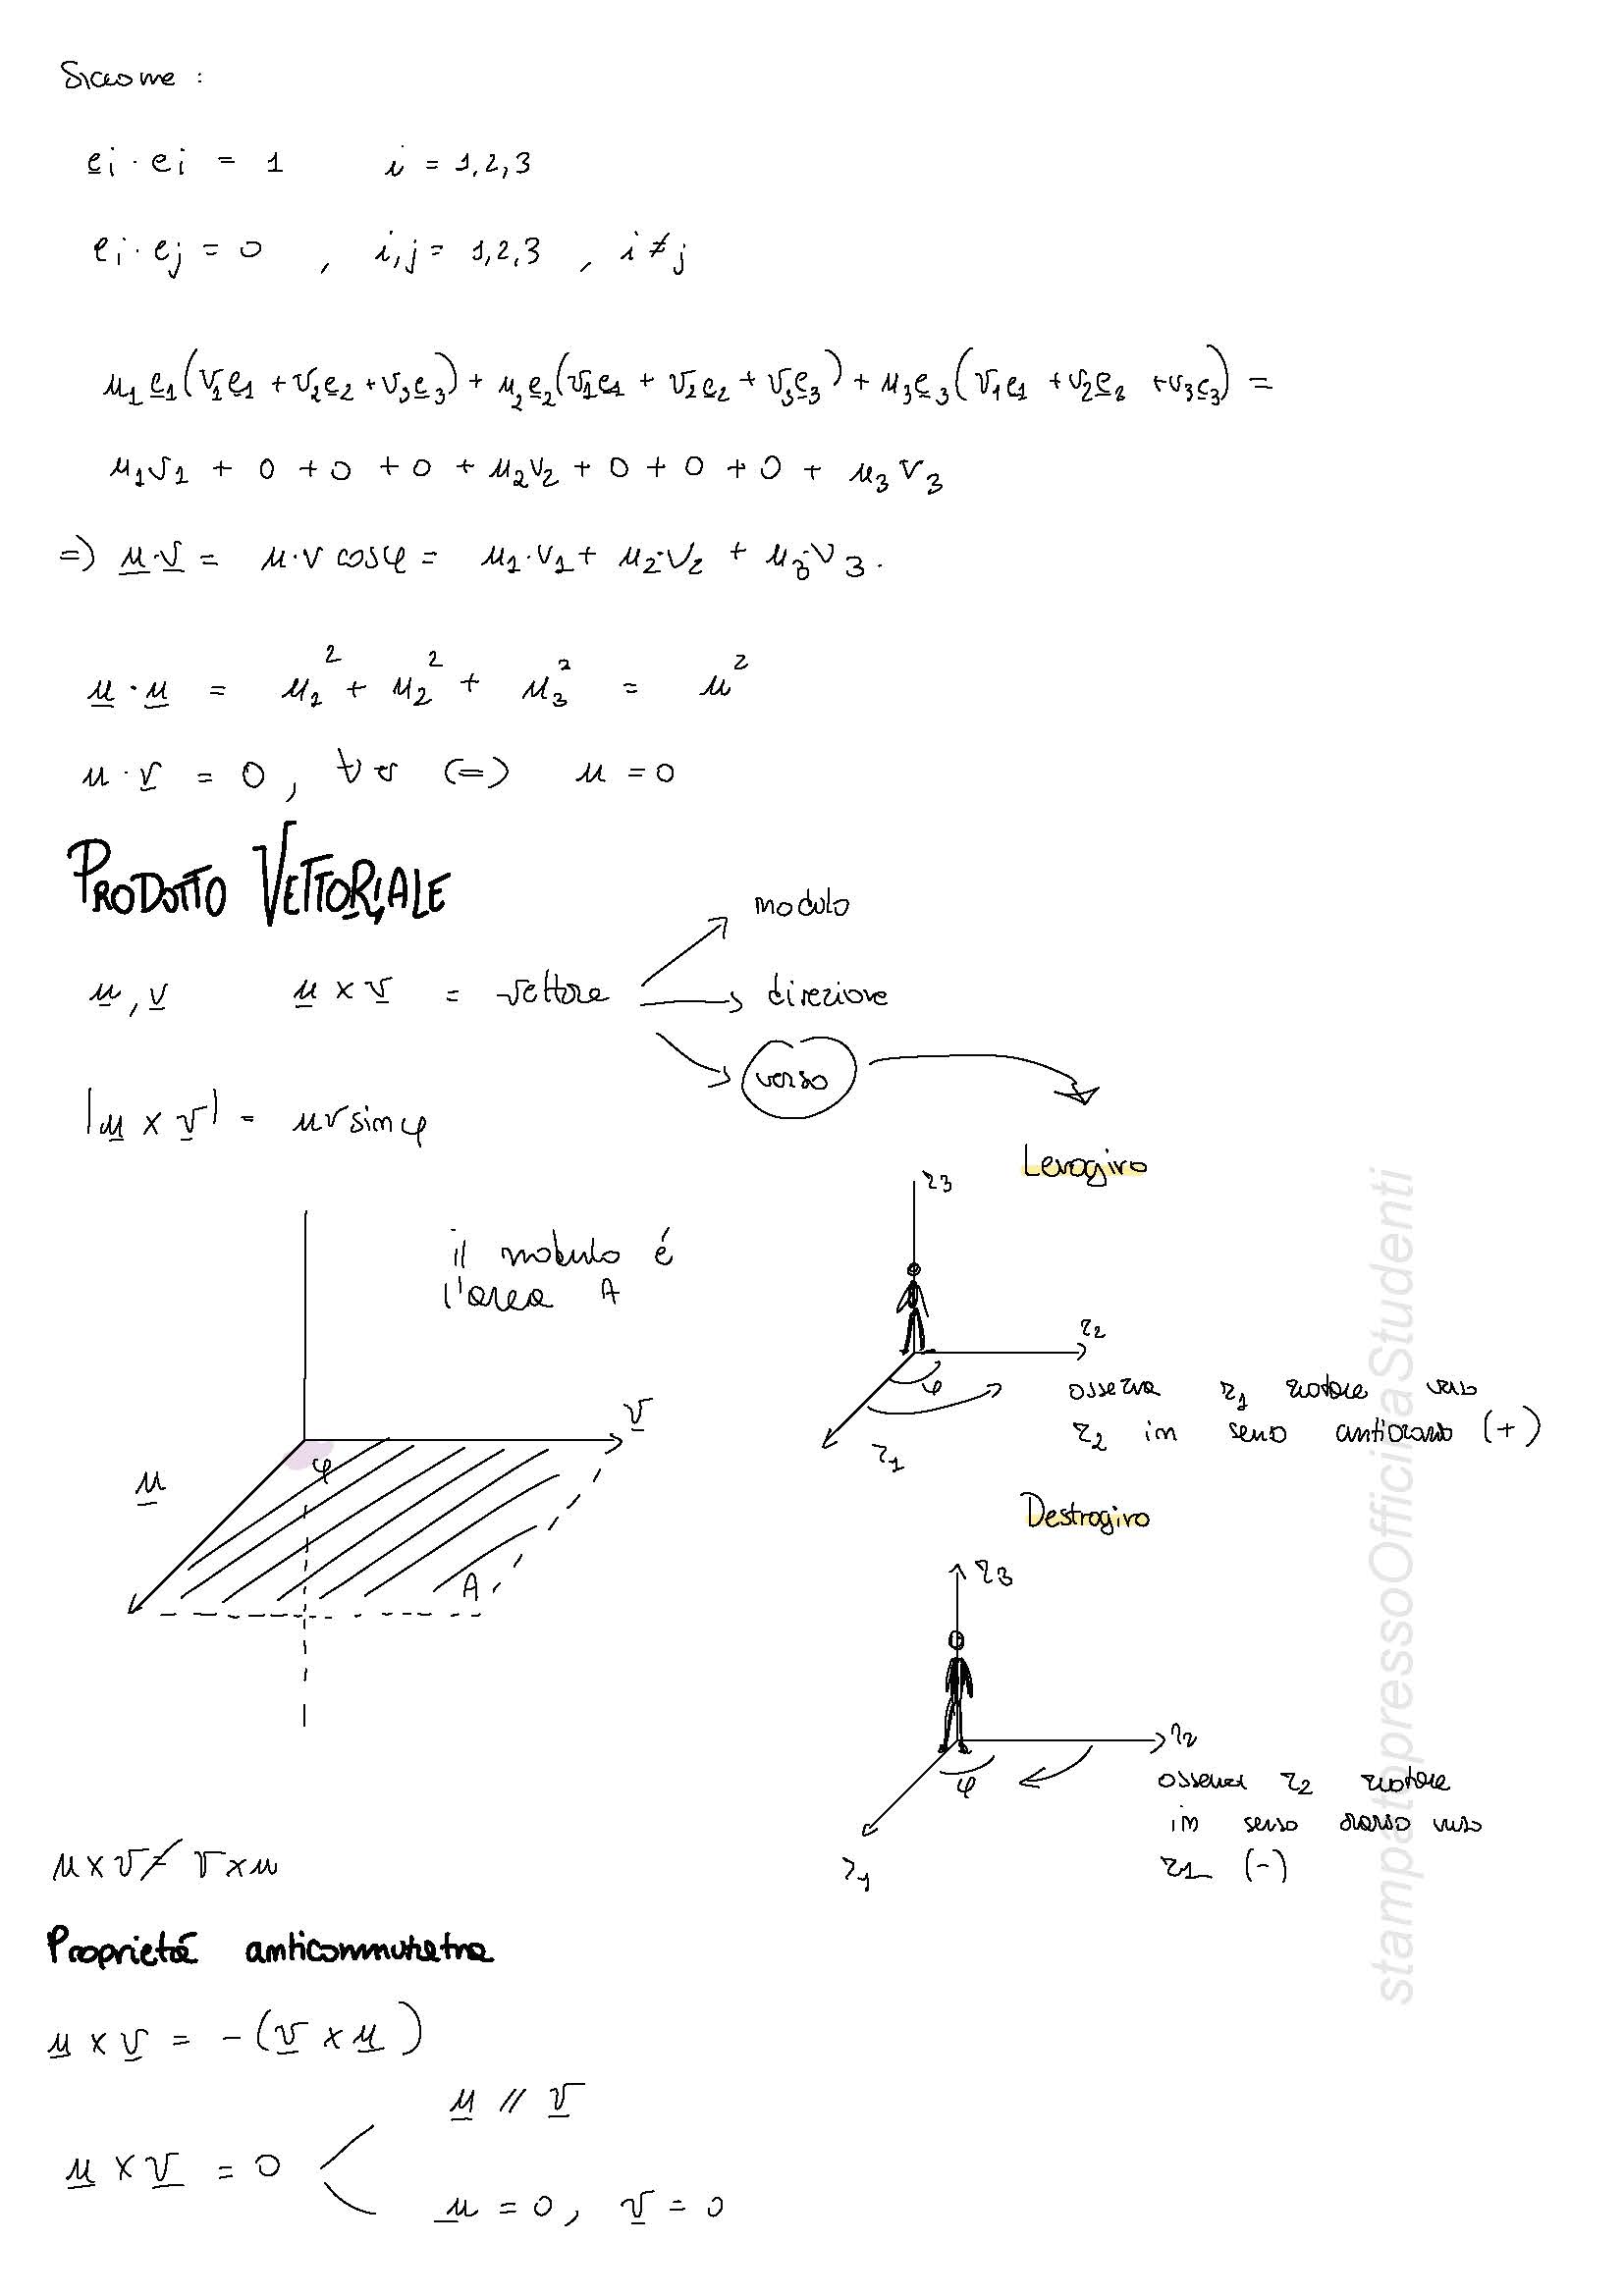 Siccome :
e̲i · ei = 1 i = 1,2,3
ei · ej = 0 , i,j = 1,2,3 , i ≠ j
u₁e̲₁(v₁e̲₁ + v₂e̲₂ + v₃e̲₃) + u₂e̲₂(v₁e₁ + v₂e̲₂ + v₃e̲₃) + u₃e̲₃(v₁e₁ + v₂e̲₂ + v₃e̲₃) =
u₁v₁ + 0 + 0 + 0 + u₂v₂ + 0 + 0 + 0 + u₃v₃
=) u̲·v̲ = u·v cosφ = u₁·v₁ + u₂·v₂ + u₃·v₃.
u̲ · u̲ = u₁² + u₂² + u₃² = u²
u · v̲ = 0 , ∀v (=) u = 0
PRODOTTO VETTORIALE
modulo
u̲ , v̲ u̲ × v̲ = vettore direzione
verso
|u̲ × v̲| = uv sinφ
Levogiro
r3
il modulo é
l'area A
r2
φ
osserva r1 ruotare verso
r2 in senso antiorario (+)
r1
v̲
φ
u̲
A
Destrogiro
r3
r2
φ
osserva r2 ruotare
in senso orario verso
r1 (-)
r1
u × v ≠ v × u
Proprietá anticommutativa
u̲ × v̲ = -(v̲ × u̲)
u̲ // v̲
u̲ × v̲ = 0
u̲ = 0, v̲ = 0
stampatopressoOfficinaStudenti